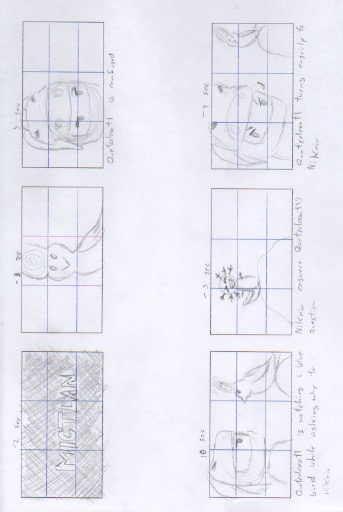 ~2 sec
MICTLAN
~3 sec
sec
Quetzalcoatl is confused
10 sec
Quetzalcoatl is watching a blue
bird while asking why to
~3 sec
answers Quetzalcoatl's
question
~4 sec
Quetzalcoatl turns angrily to